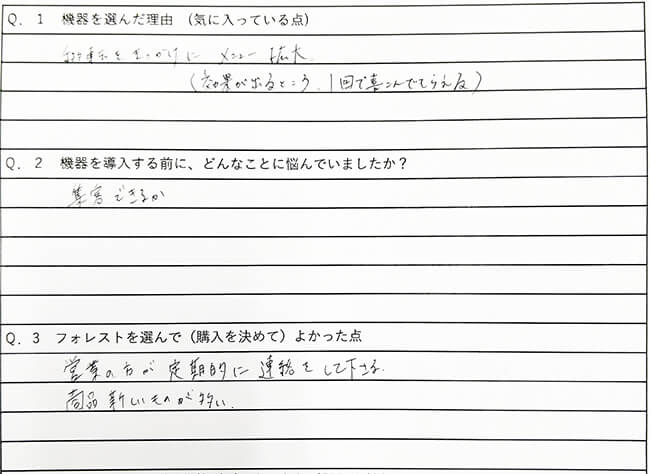 Q. 1 機器を選んだ理由 （気に入っている点）
移転をきっかけに メニュー拡大
（効果が出るところ、1回で喜こんでもらえる）
Q. 2 機器を導入する前に、どんなことに悩んでいましたか？
集客できるか
Q. 3 フォレストを選んで（購入を決めて）よかった点
営業の方が 定期的に 連絡をして下さる.
商品新しいものが多い.